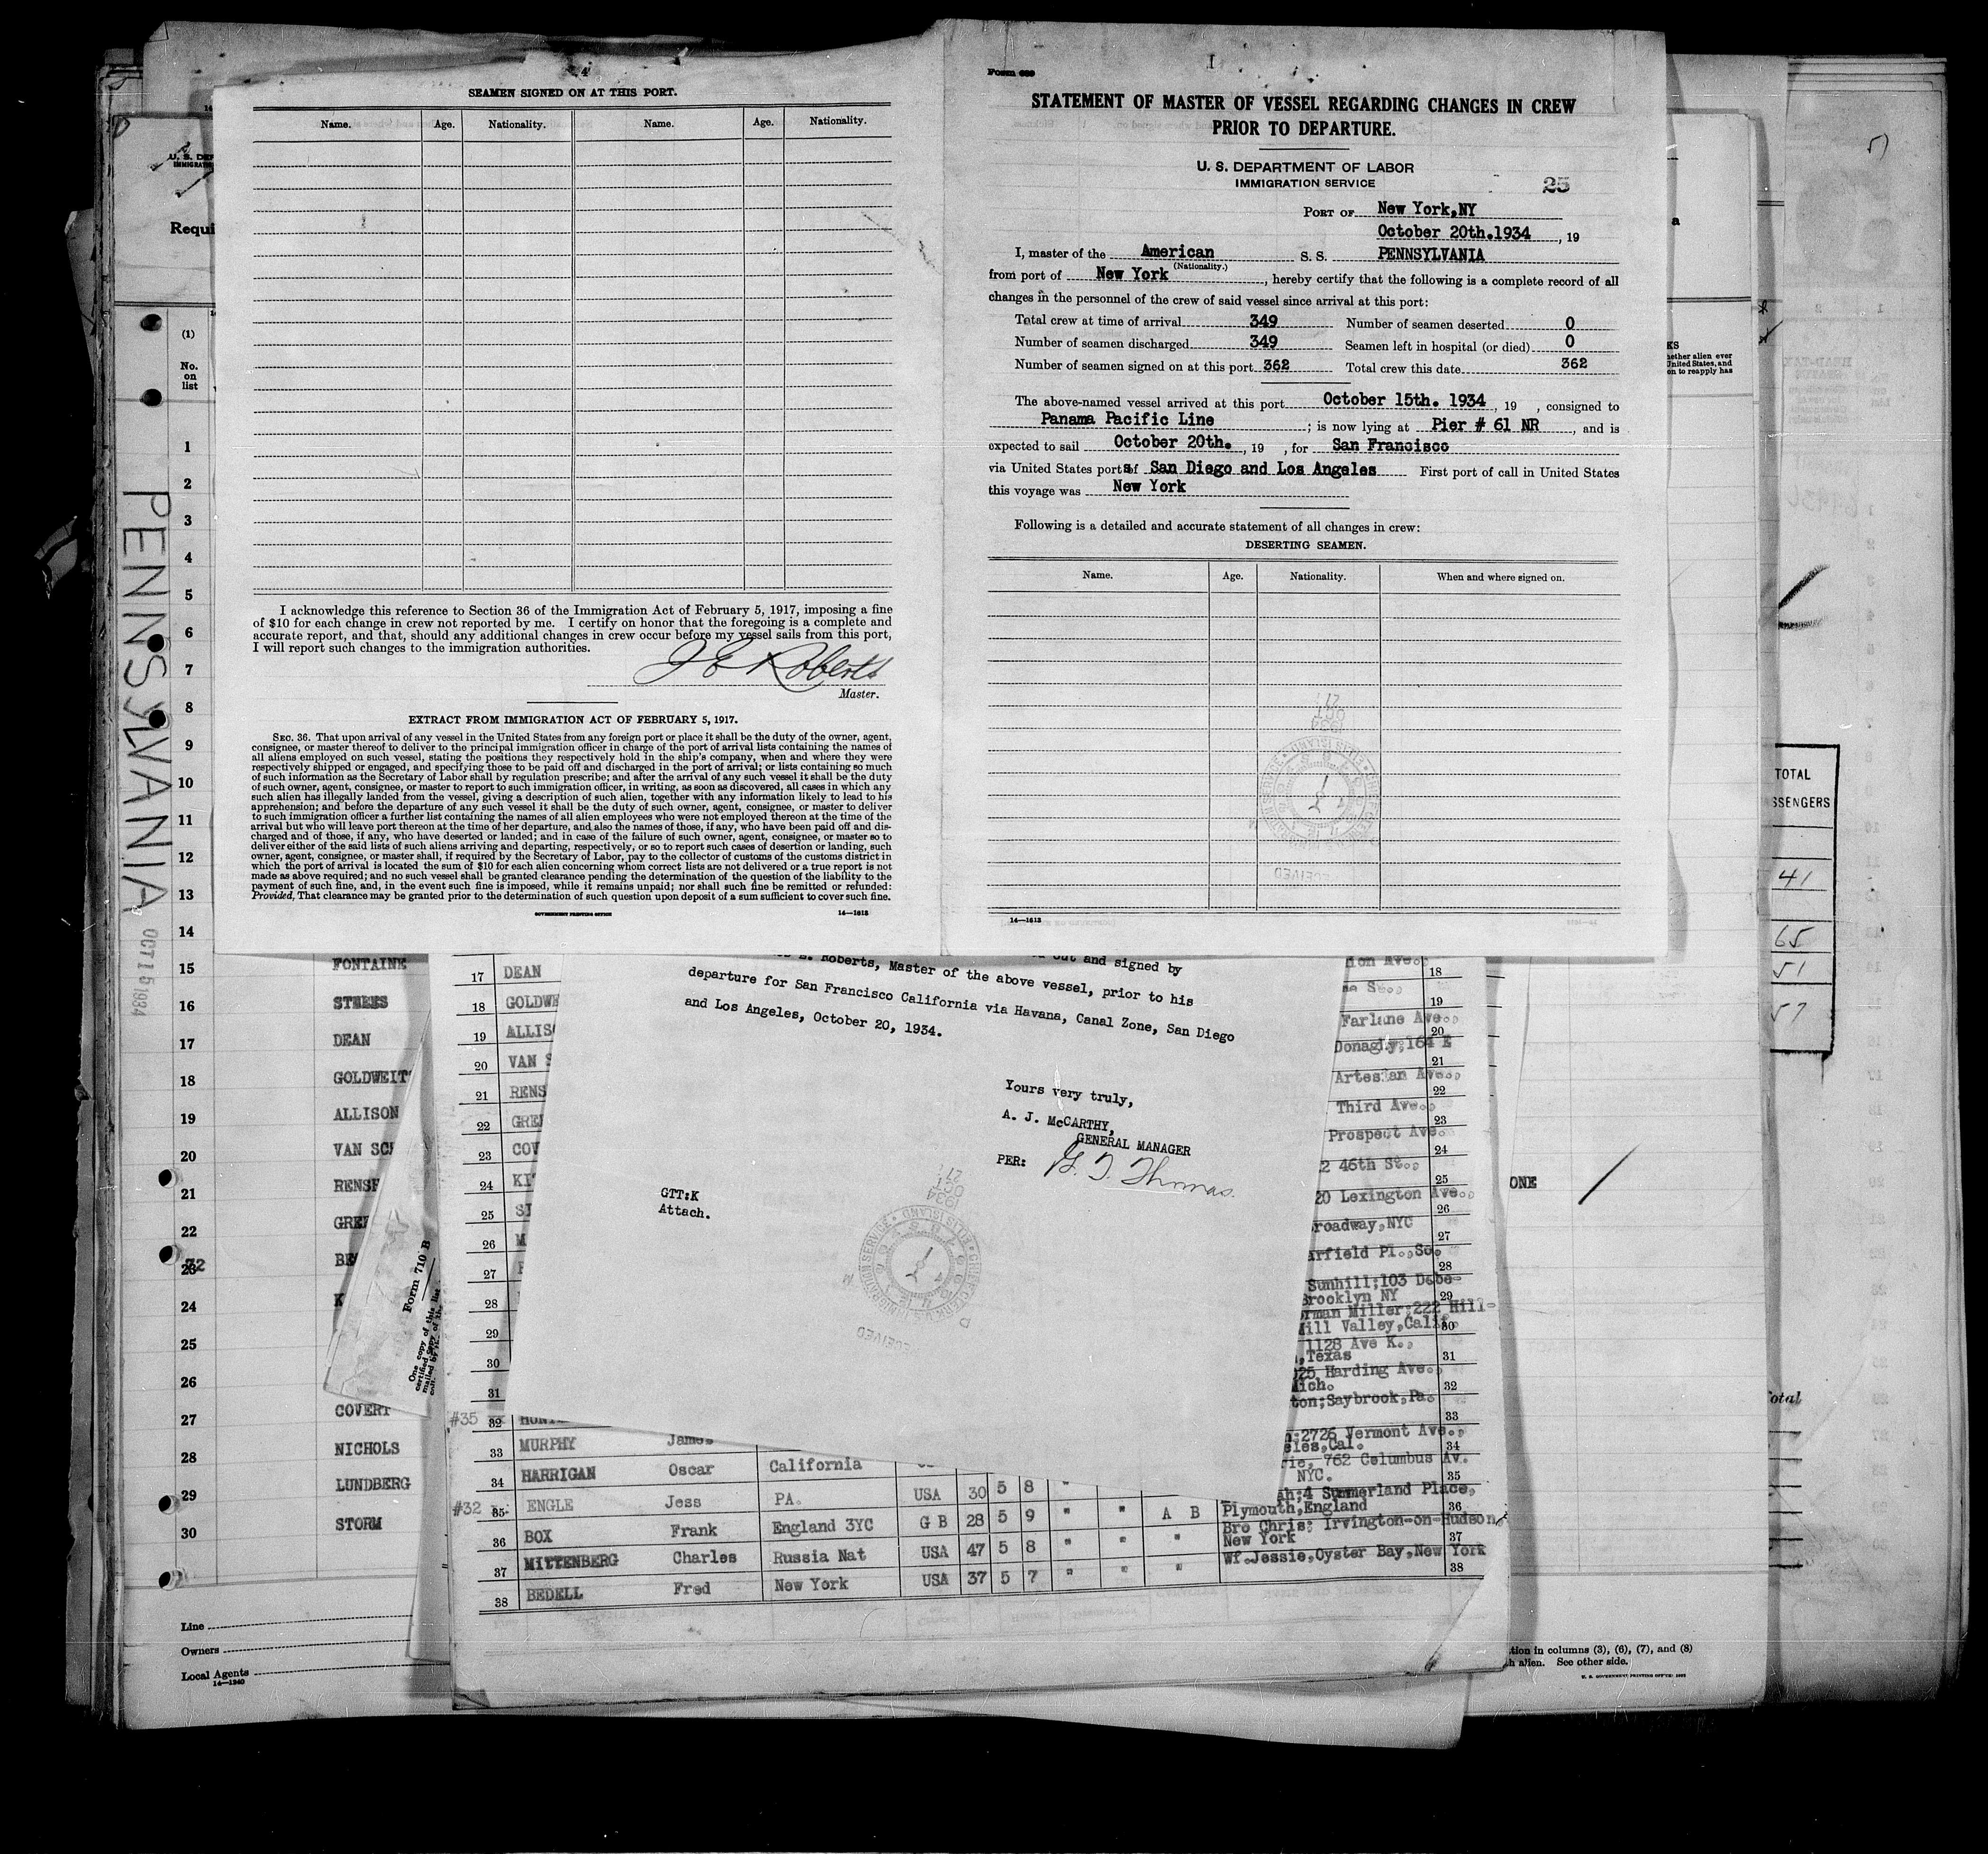 SEAMEN SIGNED ON AT THIS PORT.
Name. Age. Nationality. Name. Age. Nationality.
I acknowledge this reference to Section 36 of the Immigration Act of February 5, 1917, imposing a fine
of $10 for each change in crew not reported by me. I certify on honor that the foregoing is a complete and
accurate report, and that, should any additional changes in crew occur before my vessel sails from this port,
I will report such changes to the immigration authorities.
J E Roberts
Master.
EXTRACT FROM IMMIGRATION ACT OF FEBRUARY 5, 1917.
SEC. 36. That upon arrival of any vessel in the United States from any foreign port or place it shall be the duty of the owner, agent,
consignee, or master thereof to deliver to the principal immigration officer in charge of the port of arrival lists containing the names of
all aliens employed on such vessel, stating the positions they respectively hold in the ship's company, when and where they were
respectively shipped or engaged, and specifying those to be paid off and discharged in the port of arrival; or lists containing so much
of such information as the Secretary of Labor shall by regulation prescribe; and after the arrival of any such vessel it shall be the duty
of such owner, agent, consignee, or master to report to such immigration officer, in writing, as soon as discovered, all cases in which any
such alien has illegally landed from the vessel, giving a description of such alien, together with any information likely to lead to his
apprehension; and before the departure of any such vessel it shall be the duty of such owner, agent, consignee, or master to deliver
to such immigration officer a further list containing the names of all alien employees who were not employed thereon at the time of the
arrival but who will leave port thereon at the time of her departure, and also the names of those, if any, who have been paid off and dis-
charged and of those, if any, who have deserted or landed; and in case of the failure of such owner, agent, consignee, or master so to
deliver either of the said lists of such aliens arriving and departing, respectively, or so to report such cases of desertion or landing, such
owner, agent, consignee, or master shall, if required by the Secretary of Labor, pay to the collector of customs of the customs district in
which the port of arrival is located the sum of $10 for each alien concerning whom correct lists are not delivered or a true report is not
made as above required; and no such vessel shall be granted clearance pending the determination of the question of the liability to the
payment of such fine, and, in the event such fine is imposed, while it remains unpaid; nor shall such fine be remitted or refunded:
Provided, That clearance may be granted prior to the determination of such question upon deposit of a sum sufficient to cover such fine.
GOVERNMENT PRINTING OFFICE 14—1613
Form 689
STATEMENT OF MASTER OF VESSEL REGARDING CHANGES IN CREW
PRIOR TO DEPARTURE.
U. S. DEPARTMENT OF LABOR
IMMIGRATION SERVICE
25
PORT OF New York,NY
October 20th.1934, 19
I, master of the American S. S. PENNSYLVANIA
(Nationality.)
from port of New York, hereby certify that the following is a complete record of all
changes in the personnel of the crew of said vessel since arrival at this port:
Total crew at time of arrival 349 Number of seamen deserted 0
Number of seamen discharged 349 Seamen left in hospital (or died) 0
Number of seamen signed on at this port 362 Total crew this date 362
The above-named vessel arrived at this port October 15th. 1934, 19 , consigned to
Panama Pacific Line; is now lying at Pier # 61 NR, and is
expected to sail October 20th., 19 , for San Francisco
via United States ports of San Diego and Los Angeles First port of call in United States
this voyage was New York
Following is a detailed and accurate statement of all changes in crew:
DESERTING SEAMEN.
Name. Age. Nationality. When and where signed on.
14—1613
out and signed by
Roberts, Master of the above vessel, prior to his
departure for San Francisco California via Havana, Canal Zone, San Diego
and Los Angeles, October 20, 1934.
Yours very truly,
A. J. McCARTHY,
GENERAL MANAGER
PER: G. T. Thomas.
GTT:K
Attach.
PENNSYLVANIA
OCT 15 1934
Requi
(1)
No.
on
list
1
2
3
4
5
6
7
8
9
10
11
12
13
14
15 FONTAINE
16 STEEES
17 DEAN
18 GOLDWEIT
19 ALLISON
20 VAN SC
21 RENSH
22 GREE
23 BE
24 K
25
26
27 COVERT
28 NICHOLS
29 LUNDBERG
30 STORM
Line
Owners
Local Agents
14—1240
Form 710 B
One copy of this list
17 DEAN
18 GOLDWE
19 ALLIS
20 VAN S
21 RENS
22 GREE
23 COV
24 KI
25 SI
26 M
27
28
29
30
31
#35 32 HUN
33 MURPHY James
34 HARRIGAN Oscar California
#32 35 ENGLE Jess PA. USA 30 5 8 "
36 BOX Frank England 3YC G B 28 5 9 " " A B Plymouth,England
37 MITTENBERG Charles Russia Nat USA 47 5 8 " " " Bro Chris; Irvington-on-Hudson, New York
38 BEDELL Fred New York USA 37 5 7 " " " Wf.Jessie,Oyster Bay,New York
18
19
Farlane Ave.,
20
Donagly;164 E
21
Artesian Ave.,
22
Third Ave.,
23
Prospect Ave.
24
2 46th St.,
25
20 Lexington Ave.,
26
roadway,NYC
27
arfield Pl.,So.
28
Sunhill;103 Debe-
Brooklyn NY 29
rman Miller;222 Hill-
Mill Valley,Calif. 30
1128 Ave K.,
,Texas 31
25 Harding Ave.,
Mich. 32
ton;Saybrook,Pa.
33
2726 Vermont Ave.,
eles,Cal. 34
762 Columbus Av.
NYC. 35
4 Summerland Place,
36
37
38
ONE
TOTAL
SSENGERS
41
65
51
57
otal
tion in columns (3), (6), (7), and (8)
h alien. See other side.